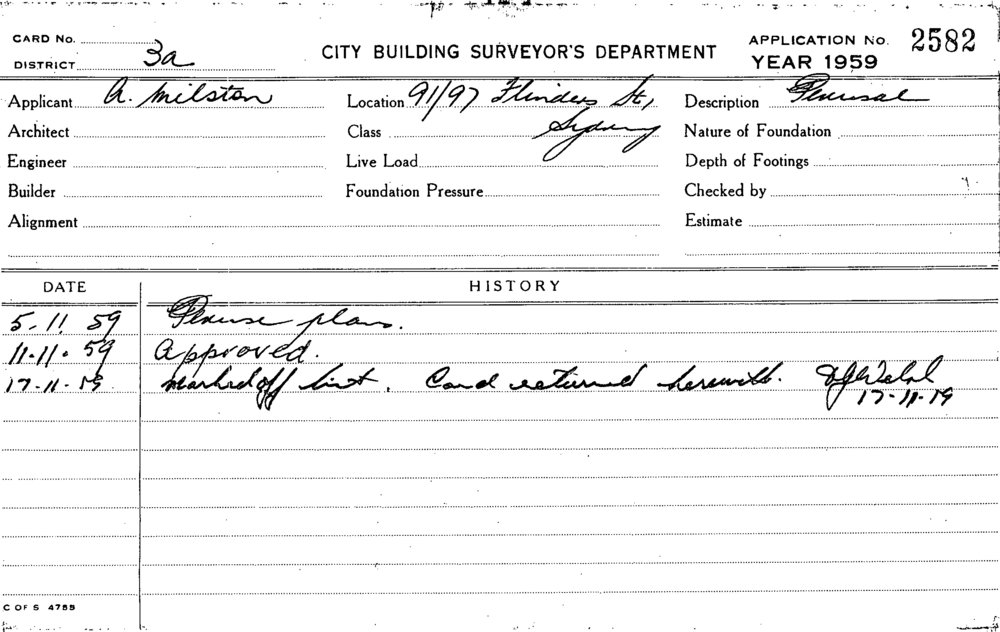 CARD No.
DISTRICT 3a
CITY BUILDING SURVEYOR'S DEPARTMENT
APPLICATION No. 2582
YEAR 1959
Applicant A. Milston Location 91/97 Flinders St, Description Perusal
Architect Class Sydney Nature of Foundation
Engineer Live Load Depth of Footings
Builder Foundation Pressure Checked by
Alignment Estimate
DATE HISTORY
5-11 59 Peruse plans.
11-11-59 Approved.
17-11-59 Marked off list. Card returned herewith.
17-11-59
C OF S 4788